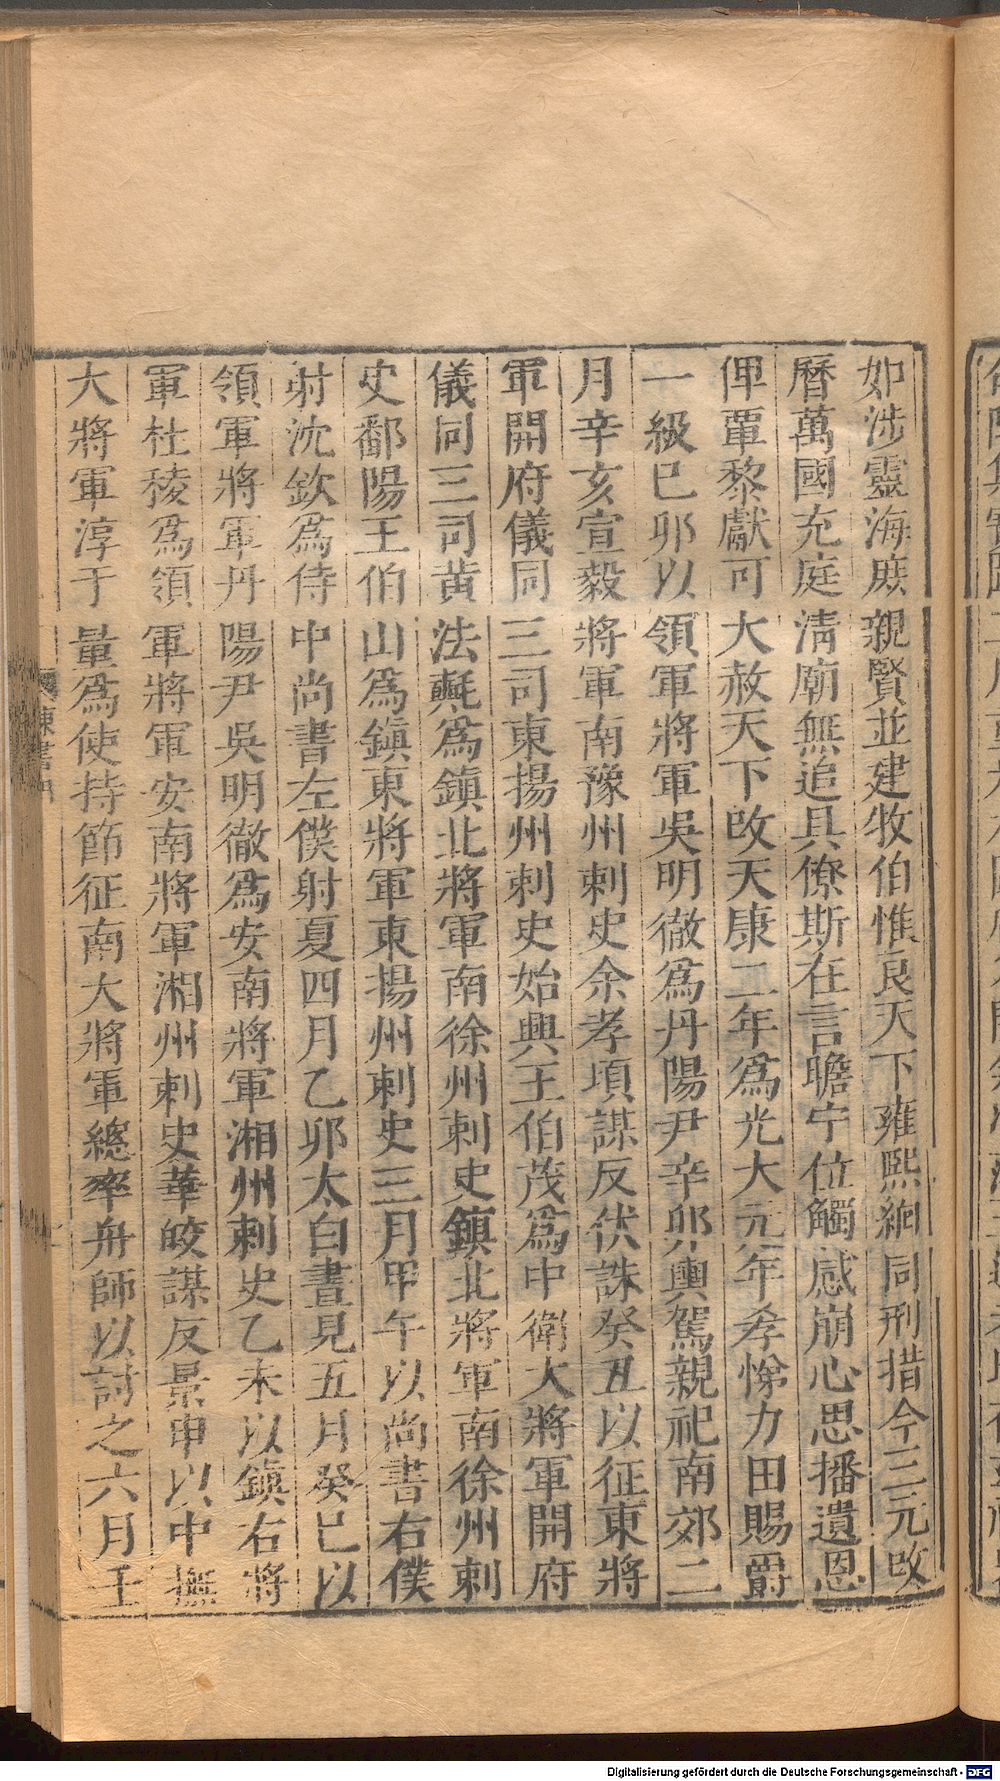 如涉靈海庶親賢並建牧伯惟良天下雍熙緗同刑措今三元改
曆萬國充庭淸廟無追具僚斯在言瞻宁位觸感崩心思播遺恩
俾覃黎獻可大赦天下改天康二年爲光大元年孝悌力田賜爵
一級巳卯以領軍將軍吳明徹爲丹陽尹辛卯輿駕親祀南郊二
月辛亥宣毅將軍南豫州刺史余孝頃謀反伏誅癸丑以征東將
軍開府儀同三司東揚州刺史始興王伯茂爲中衛大將軍開府
儀同三司黃法𣰋爲鎭北將軍南徐州刺史鎭北將軍南徐州刺
史鄱陽王伯山爲鎭東將軍東揚州刺史三月甲午以尚書右僕
射沈欽爲侍中尚書左僕射夏四月乙卯太白晝見五月癸巳以
領軍將軍丹陽尹吳明徹爲安南將軍湘州刺史乙未以鎭右將
軍杜稜爲領軍將軍安南將軍湘州刺史華皎謀反景申以中撫
大將軍淳于量爲使持節征南大將軍總率舟師以討之六月壬
陳書四
Digitalisierung gefördert durch die Deutsche Forschungsgemeinschaft - DFG